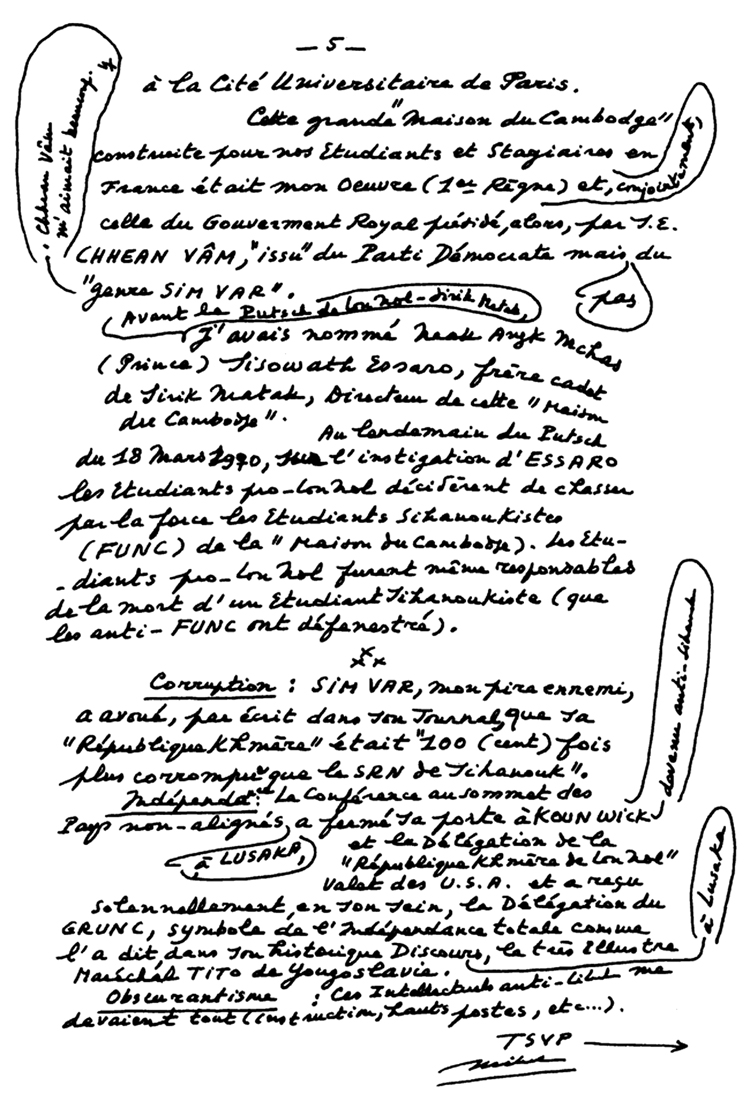 — 5 —
à la Cité Universitaire de Paris.
Cette grande "Maison du Cambodge"
construite pour nos Etudiants et Stagiaires en
France était mon Oeuvre (1er Règne) et, conjointement,
celle du Gouverment Royal présidé, alors, par S.E.
CHHEAN VÂM, "issu" du Parti Démocrate mais pas du
"genre SIM VAR".
. Chhean Vâm
m'aimait beaucoup.
Avant le Putsch de Lon Nol-Sirik Matak,
J'avais nommé Neak Angk Mchas
(Prince) Sisowath Essaro, frère cadet
de Sirik Matak, Directeur de cette "Maison
du Cambodge".
Au lendemain du Putsch
du 18 Mars 1970, sur l'instigation d'ESSARO
les Etudiants pro-Lon Nol décidèrent de chasser
par la force les Etudiants Sihanoukistes
(FUNC) de la "Maison du Cambodge). Les Etu-
-diants pro-Lon Nol furent même responsables
de la mort d'un Etudiant Sihanoukiste (que
les anti-FUNC ont défenestré).
x x x
Corruption : SIM VAR, mon pire ennemi,
a avoué, par écrit dans son Journal, que sa
"République Khmère" était "100 (cent) fois
plus corrompue que le SRN de Sihanouk".
Indépendce : La Conférence au sommet des
Pays non-alignés, à LUSAKA, a fermé sa porte à KOUN WICK
devenu anti-Sihanouk
et la Délégation de la
"République Khmère de Lon Nol"
Valet des U.S.A. et a reçu
solennellement, en son sein, la Délégation du
GRUNC, symbole de l'Indépendance totale comme
l'a dit, dans son historique Discours, le très Illustre
à Lusaka
Maréchal TITO de Yougoslavie.
Obscurantisme : Ces Intellectuels anti-Sihk me
devaient tout (instruction, hauts postes, etc...).
TSVP →